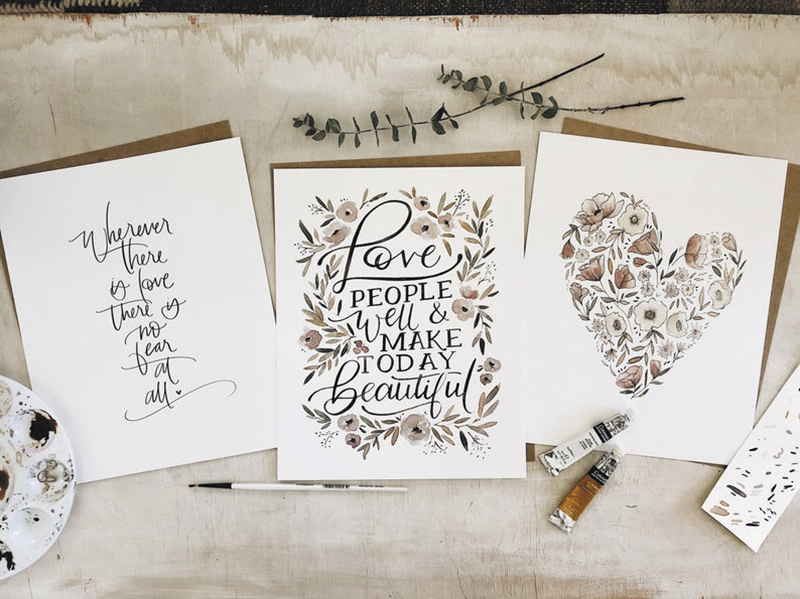 Wherever
there
is love
there is
no
fear
at
all
Love
PEOPLE
well &
MAKE
TODAY
beautiful